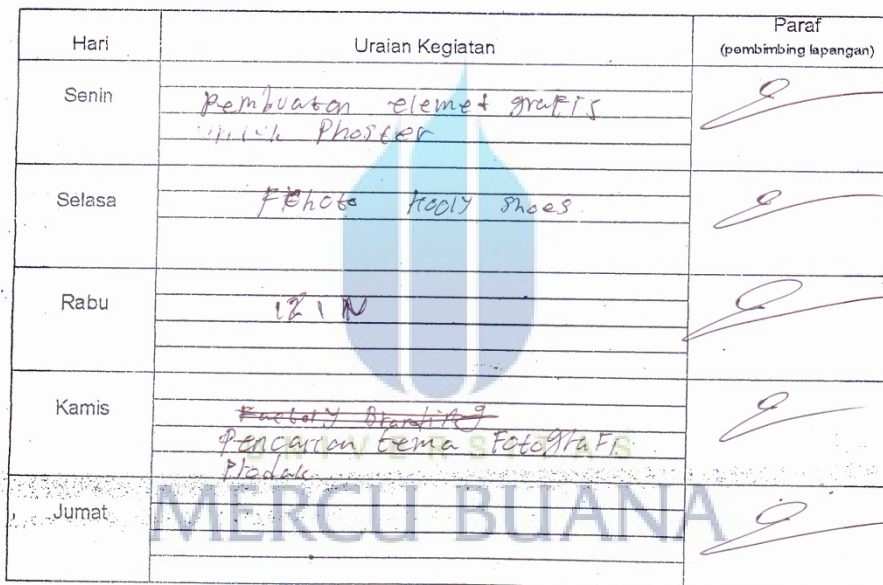 Hari Uraian Kegiatan Paraf
(pembimbing lapangan)
Senin
Pembuatan elemet grafis
Phoster
Selasa
Photo Hooly shoes
Rabu
IZIN
Kamis
Factory Branding
Pencarian tema Fotografi
UNIVERSITAS
Prodak
Jumat
MERCU BUANA